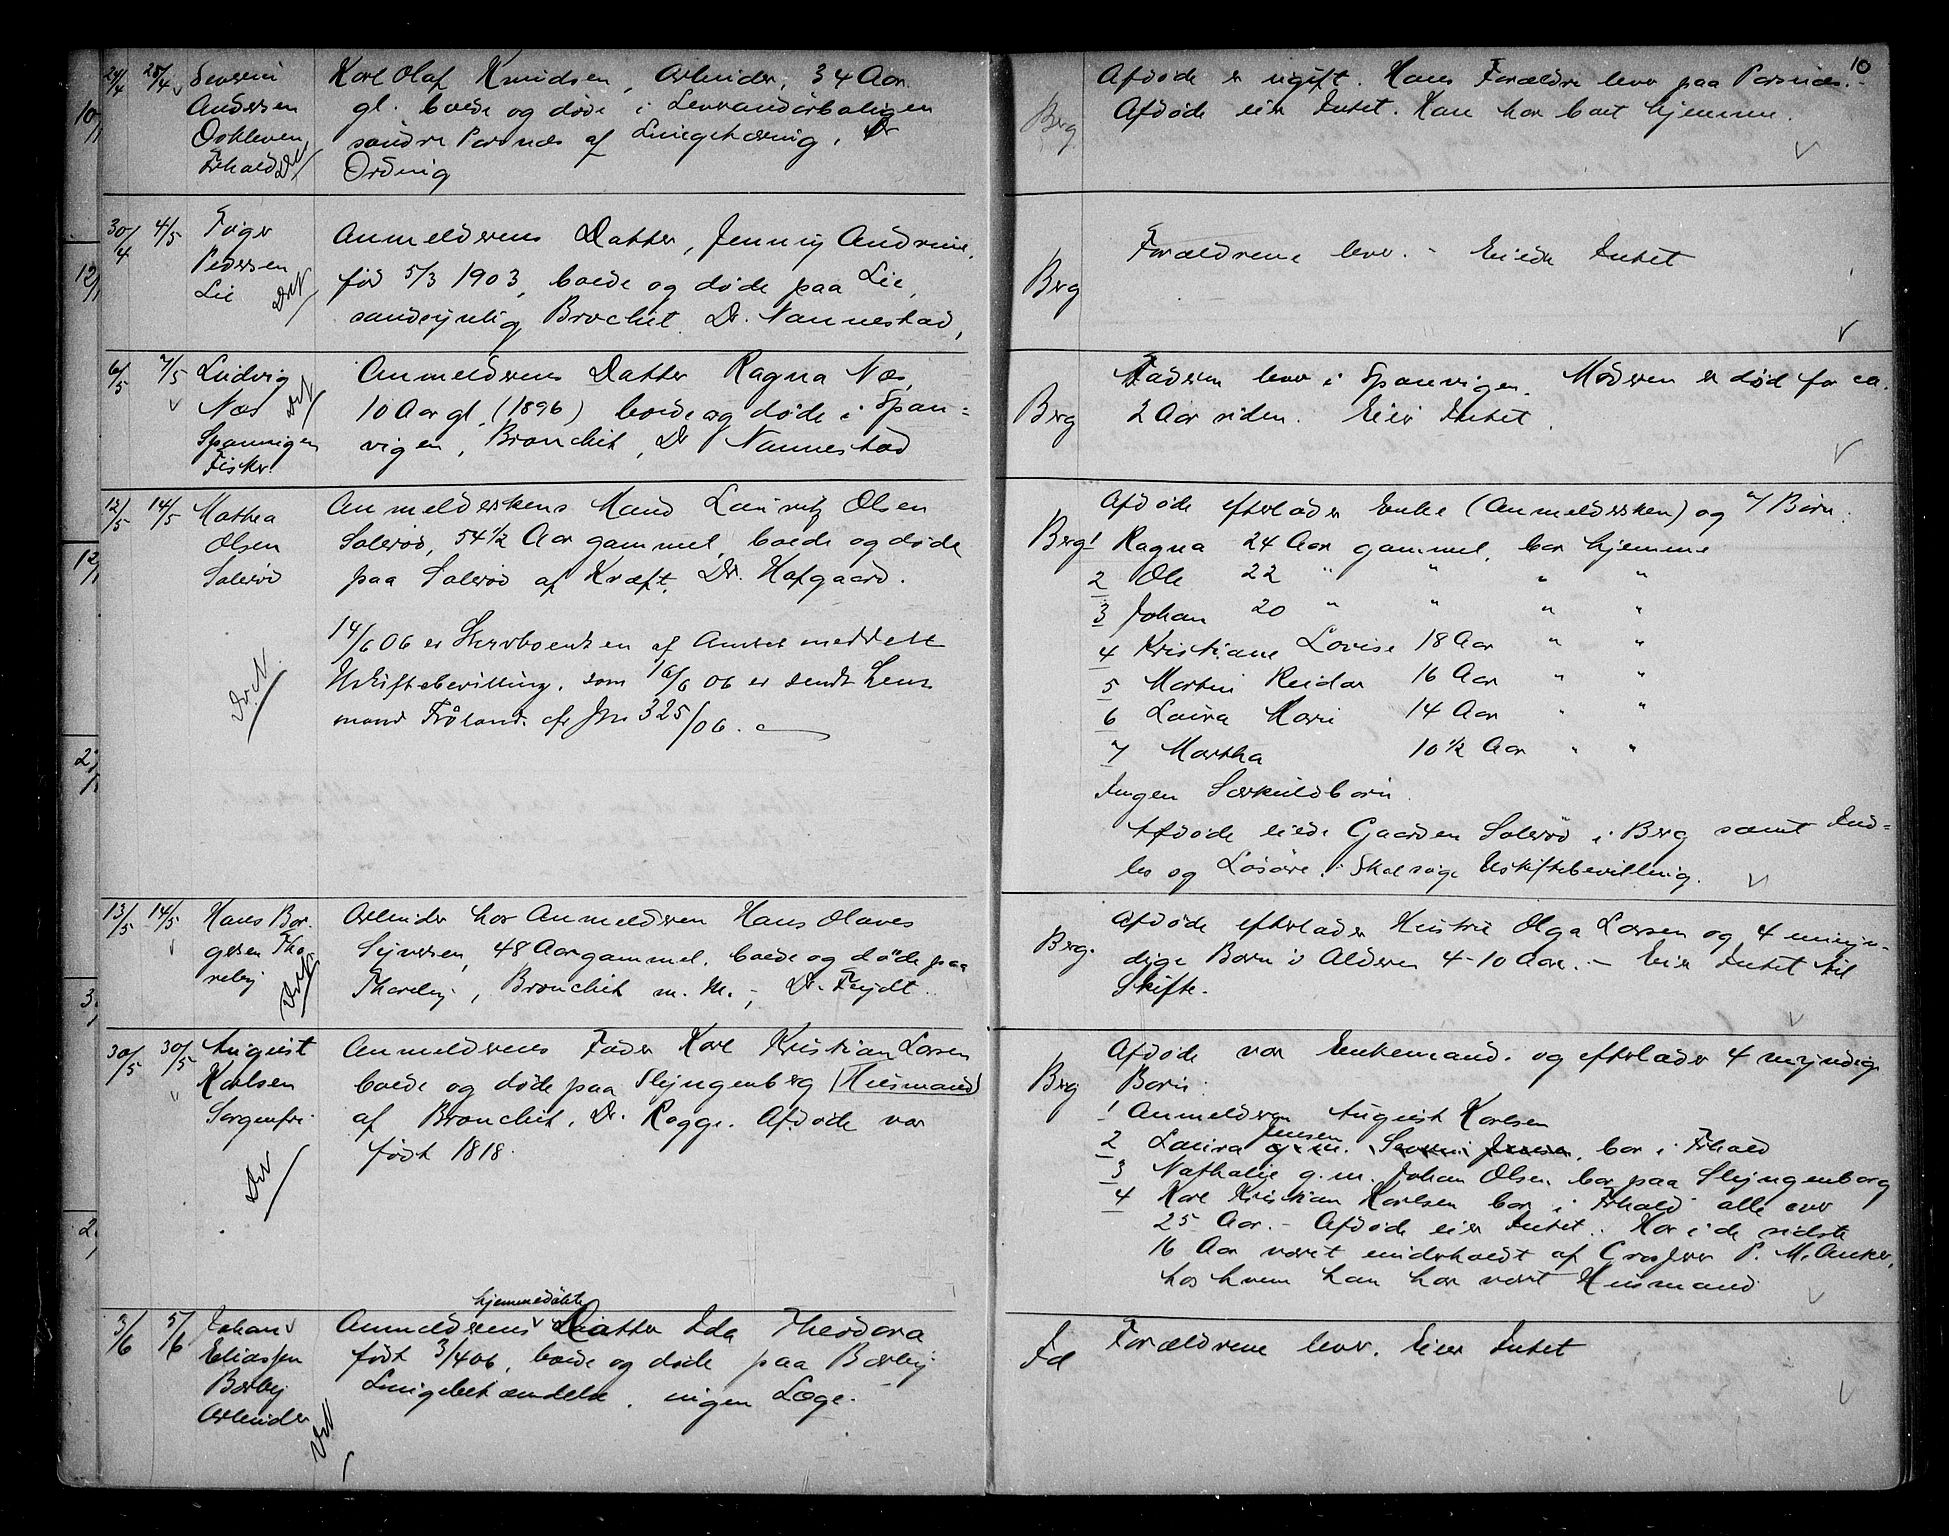 10
24/4 25/4 Severin Andersen Ookleven Frhald DN
Karl Olaf Knudsen, Arbeider, 34 Aar
gl. boede og døde i Leverandørboligen
søndre Parnæs af Lungetæring, Dr
Ording
Berg
Afdøde er ugift. Hans Forældre lever paa Parnæs.-
Afdøde eier Intet. Han har boet hjemme.
30/4 4/5 Inger Pedersen Lie DN
Anmelderens Datter, Jenny Andrine,
fød 5/3 1903, boede og døde paa Lie,
sandsynlig Brochit. Dr. Nannestad,
Berg
Forældrene lever. - Eiede Intet
6/5 7/5 Ludvig Næs Spanvigen Fisker. DN
Anmelderens Datter Ragna Næs,
10 Aar gl, (1896) boede og døde i Span=
vigen, Bronchit, Dr Nannestad
Berg
Faderen lever i Spanvigen. Moderen er død for ca.
2 Aar siden. Eier Intet.
12/5 14/5 Mathea Olsen Solerød
Anmelderskens Mand Lauritz Olsen
Solerød, 54 1/2 Aar gammel, boede og døde
paa Solerød af Kræft. Dr. Hofgaard.
14/6 06 er Stervboenken af Amtet meddelt
Uskiftebevilling, som 16/6 06 er sendt Lens
mand Frøland. cfr Jrn 325/06.
DN
Berg
Afdøde efterlader Enke (Anmeldersken) og 7 Børn:
1 Ragna 24 Aar gammel, bor hjemme
2 Ole 22 " " " "
3 Johan 20 " " " "
4 Kristiane Lovise 18 Aar " "
5 Martin Reidar 16 Aar " "
6 Laura Marie 14 Aar " "
7 Martha 10 1/2 Aar " "
Ingen Særkuldbørn.
Afdøde eiede Gaarden Solerød i Berg samt Ind=
bo og Løsøre. Skal søge Uskiftebevilling.
13/5 14/5 Hans Bor-
gersen Tho
reby DN
Arbeider hos Anmelderen Hans Olaves
Syversen, 48 Aar gammel, boede og døde paa
Thoreby, Bronchit m. M., Dr. Feydt.
Berg.
Afdøde efterlader Hustru Olga Larsen og 4 umyn-
dige Børn i Alderen 4-10 Aar. - Eier Intet til
Skifte.
30/5 30/5 August Karlsen Sorgenfri
DN
Anmelderens Fader Karl Kristian Larsen
boede og døde paa Slyngenberg (Husmand)
af Bronchit, Dr. Rogge. Afdøde var
født 1818.
Berg
Afdøde var Enkemand. og efterlader 4 myndige
Børn.
1 Anmelderen August Karlsen
2 Laura Jensen, bor i Frhald
3 Nathalie g. m. Johan Olsen bor paa Slyngenborg
4 Karl Kristian Karlsen bor i Frhald alle over
25 Aar. - Afdøde eier Intet. Har i de sidste
16 Aar været underholdt af Grosserer P. M. Anker,
hos hvem han har været Husmand
3/6 5/6 Johan Eliassen Børby Arbeider DN
hjemmedøbte
Anmelderens Datter Ida Theodora
født 3/4 06, boede og døde paa Børby
Lungebetændelse, ingen Læge.
Id
Forældrene lever. Eier Intet